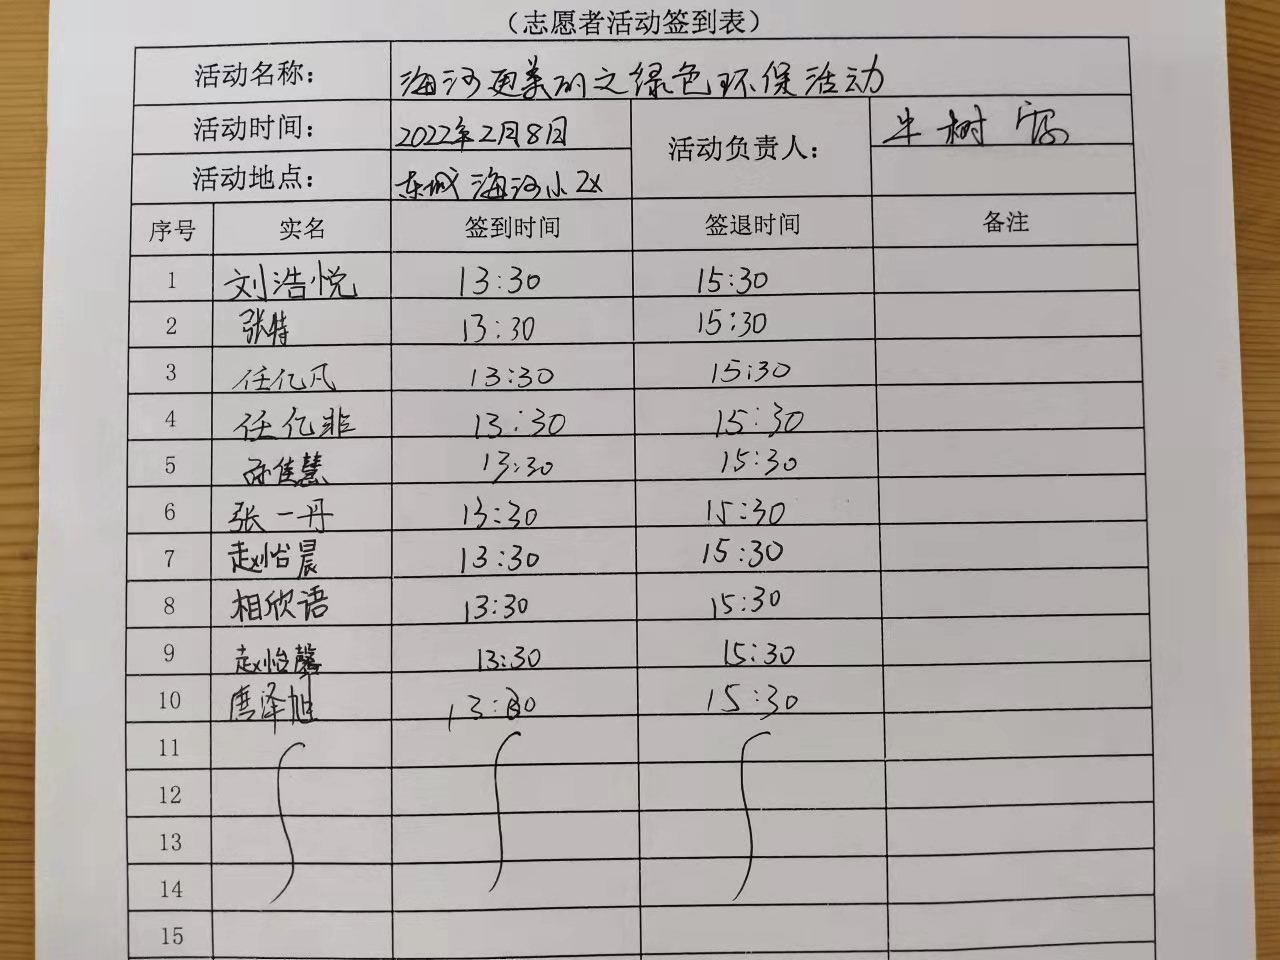 （志愿者活动签到表）
活动名称： 海河更美的之绿色环保活动
活动时间： 2022年2月8日 活动负责人： 牛树
活动地点： 东城海河小区
序号 实名 签到时间 签退时间 备注
1 刘浩悦 13:30 15:30
2 张特 13:30 15:30
3 任亿凡 13:30 15:30
4 任亿非 13:30 15:30
5 孙佳慧 13:30 15:30
6 张一丹 13:30 15:30
7 赵怡晨 13:30 15:30
8 相欣语 13:30 15:30
9 赵怡馨 13:30 15:30
10 唐泽旭 13:30 15:30
11
12
13
14
15